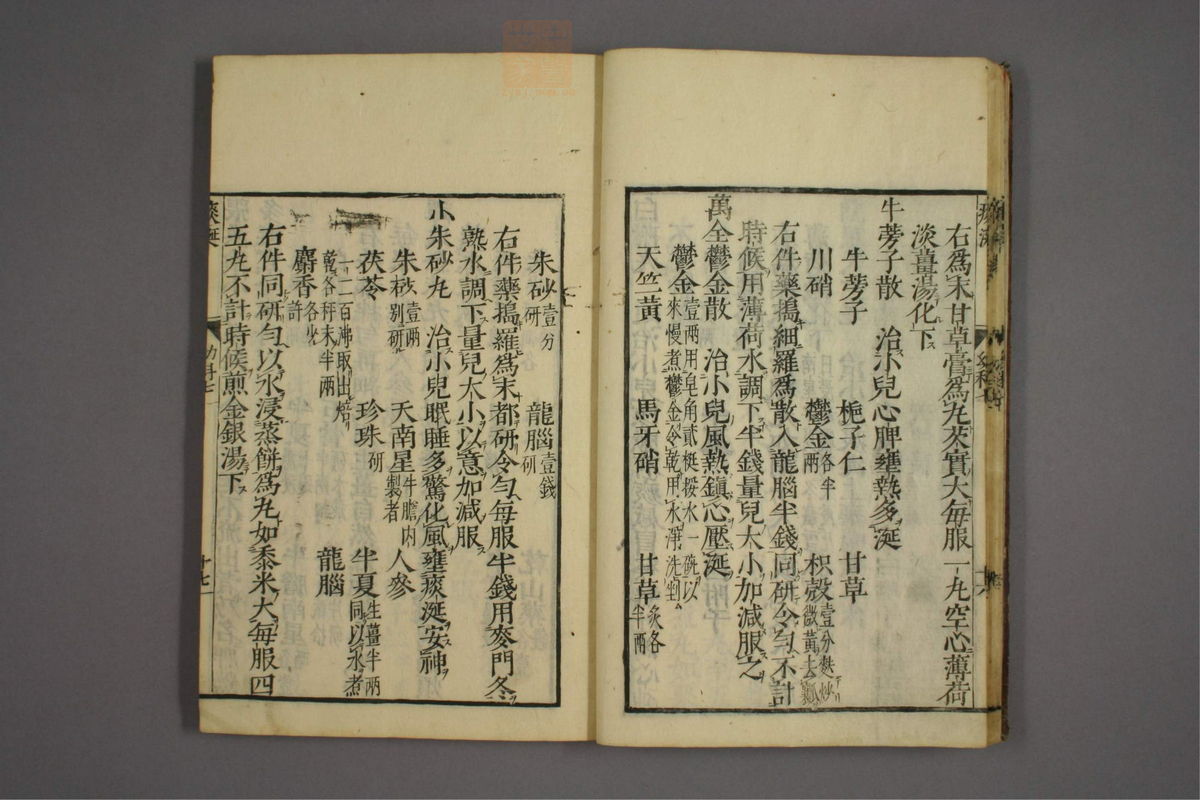 右爲末甘草膏爲丸芡實大每服一丸空心薄荷
淡薑湯化下
牛蒡子散　治小兒心脾壅熱多涎
牛蒡子　梔子仁　甘草
川硝　鬱金各半兩　枳殼壹分麩炒微黃去瓤
右件藥搗細羅爲散入龍腦半錢同研令勻不計
時候用薄荷水調下半錢量兒大小加減服之
萬全鬱金散　治小兒風熱鎭心壓涎
鬱金壹兩用皂角貳梃挼水一碗以來慢煮鬱金令乾用水淨洗剉
天竺黃　馬牙硝　甘草炙各半兩
朱砂壹分研　龍腦壹錢研
右件藥搗羅爲末都研令勻每服半錢用麥門冬
熟水調下量兒大小以意加減服
小朱砂丸　治小兒眠睡多驚化風壅痰涎安神
朱砂壹兩別研　天南星牛膽內製者　人參
茯苓　珍珠研　半夏生薑半兩同以水煮
一二百沸取出焙乾各秤末半兩　龍腦
麝香各少許
右件同研勻以水浸蒸餠爲丸如黍米大每服四
五丸不計時候煎金銀湯下
痰涎
幼科七
十七